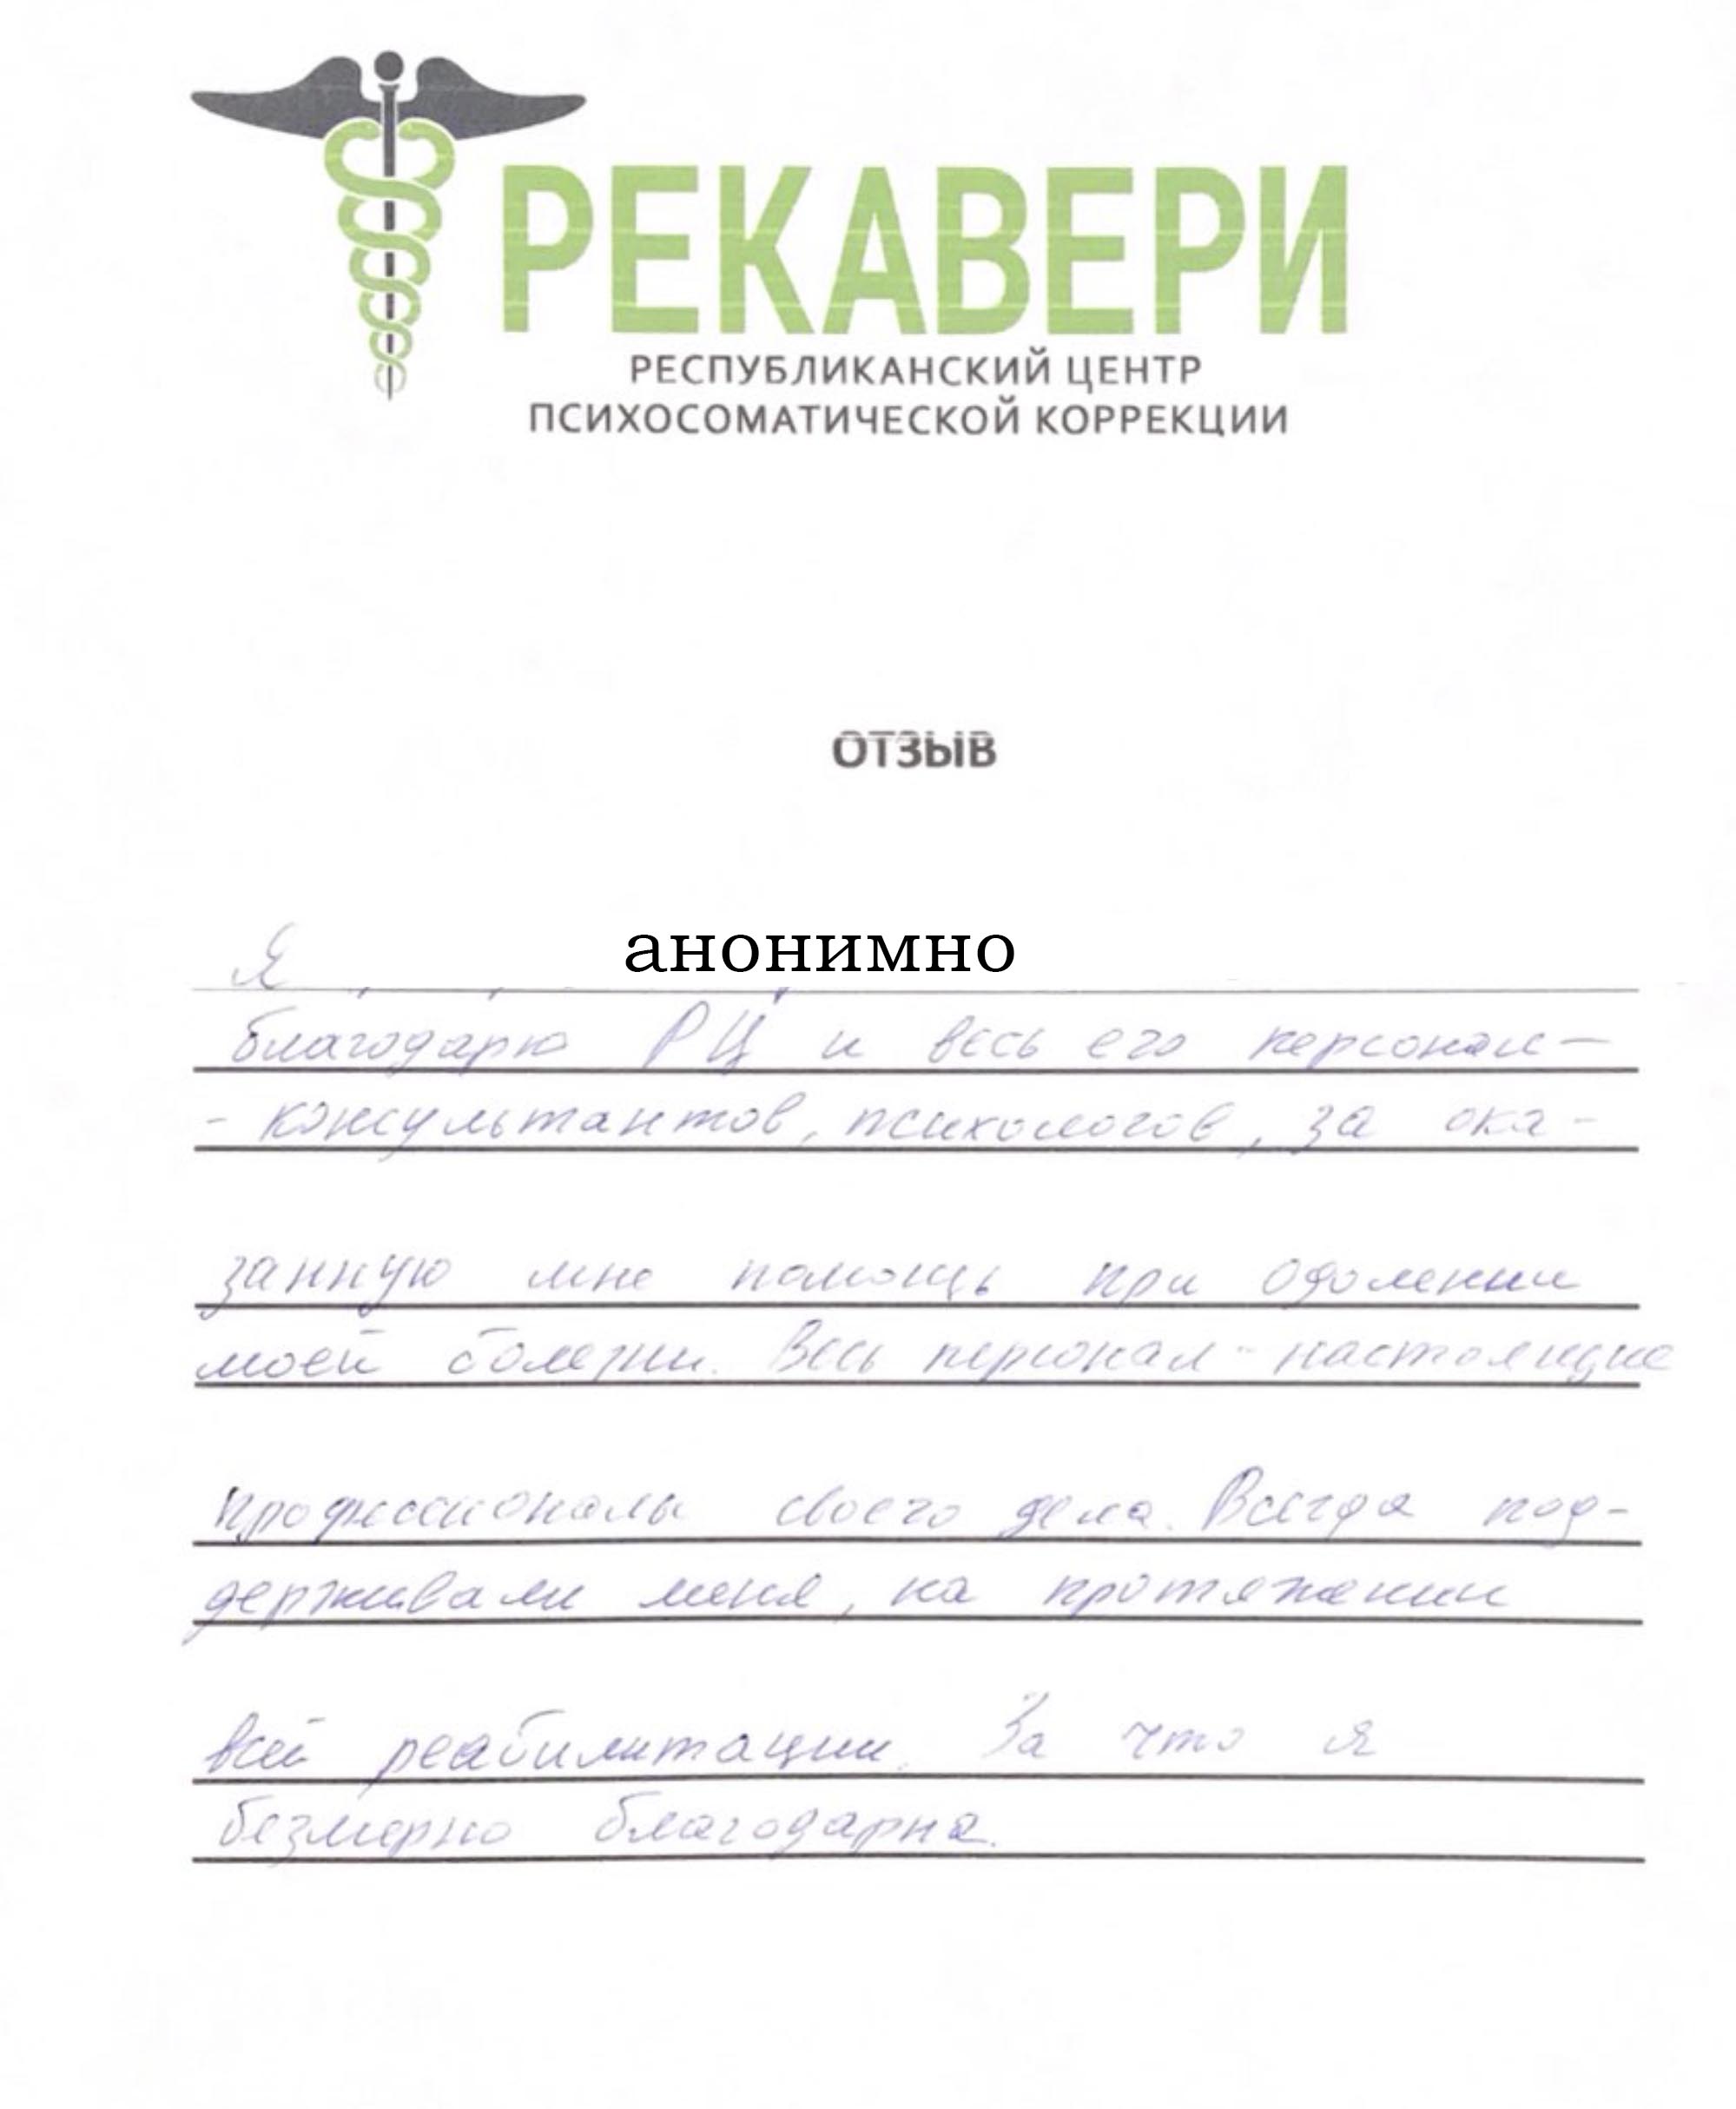 РЕКАВЕРИ
РЕСПУБЛИКАНСКИЙ ЦЕНТР
ПСИХОСОМАТИЧЕСКОЙ КОРРЕКЦИИ
ОТЗЫВ
Я анонимно
благодарю РЦ и весь его персонал –
- консультантов, психологов, за ока-
занную мне помощь при одолении
моей болезни. Весь персонал - настоящие
профессионалы своего дела. Всегда под-
держивали меня, на протяжении
всей реабилитации. За что я
безмерно благодарна.